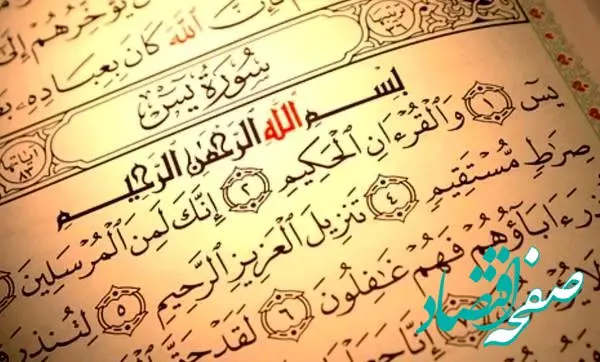 يُؤَخِّرُهُمْ إِلَىٰ
فَإِنَّ ٱللَّهَ كَانَ بِعِبَادِهِۦ
٣٦ سُورَةُ يسٓ آياتها ٨٣
بِسْمِ ٱللَّهِ ٱلرَّحْمَٰنِ ٱلرَّحِيمِ
يسٓ ١ وَٱلْقُرْءَانِ ٱلْحَكِيمِ ٢ إِنَّكَ لَمِنَ ٱلْمُرْسَلِينَ
صِرَٰطٍ مُّسْتَقِيمٍ ٤ تَنزِيلَ ٱلْعَزِيزِ ٱلرَّحِيمِ ٥ لِتُنذِرَ
أُنذِرَ ءَابَآؤُهُمْ فَهُمْ غَٰفِلُونَ ٦ لَقَدْ حَقَّ
إِنَّا
صفحه اقتصاد